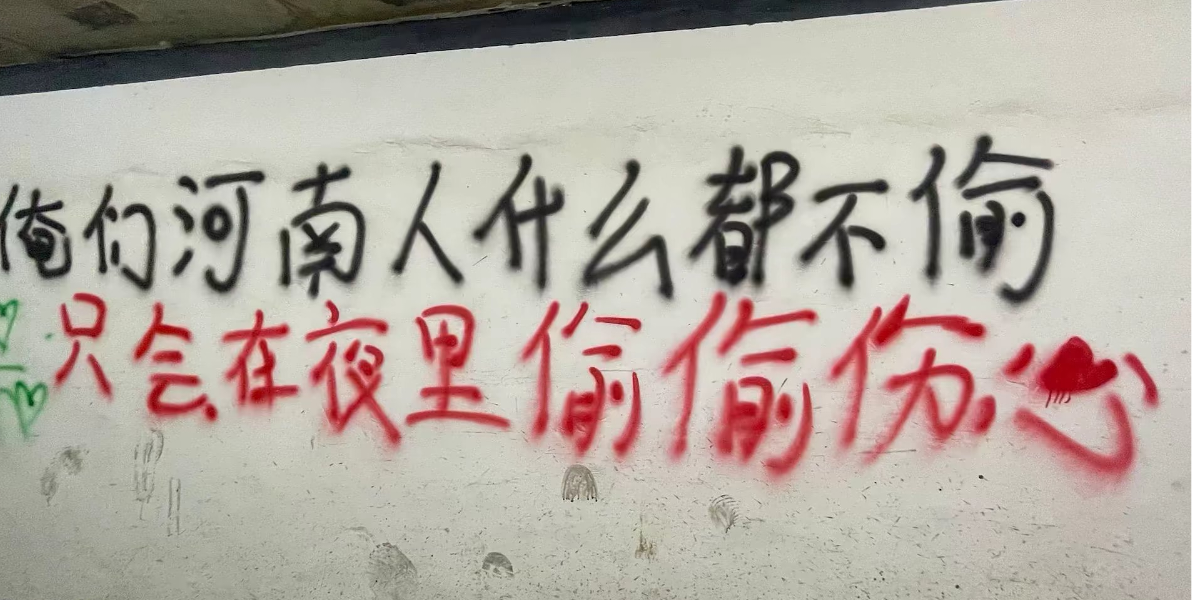 俺们河南人什么都不偷
只会在夜里偷偷伤心